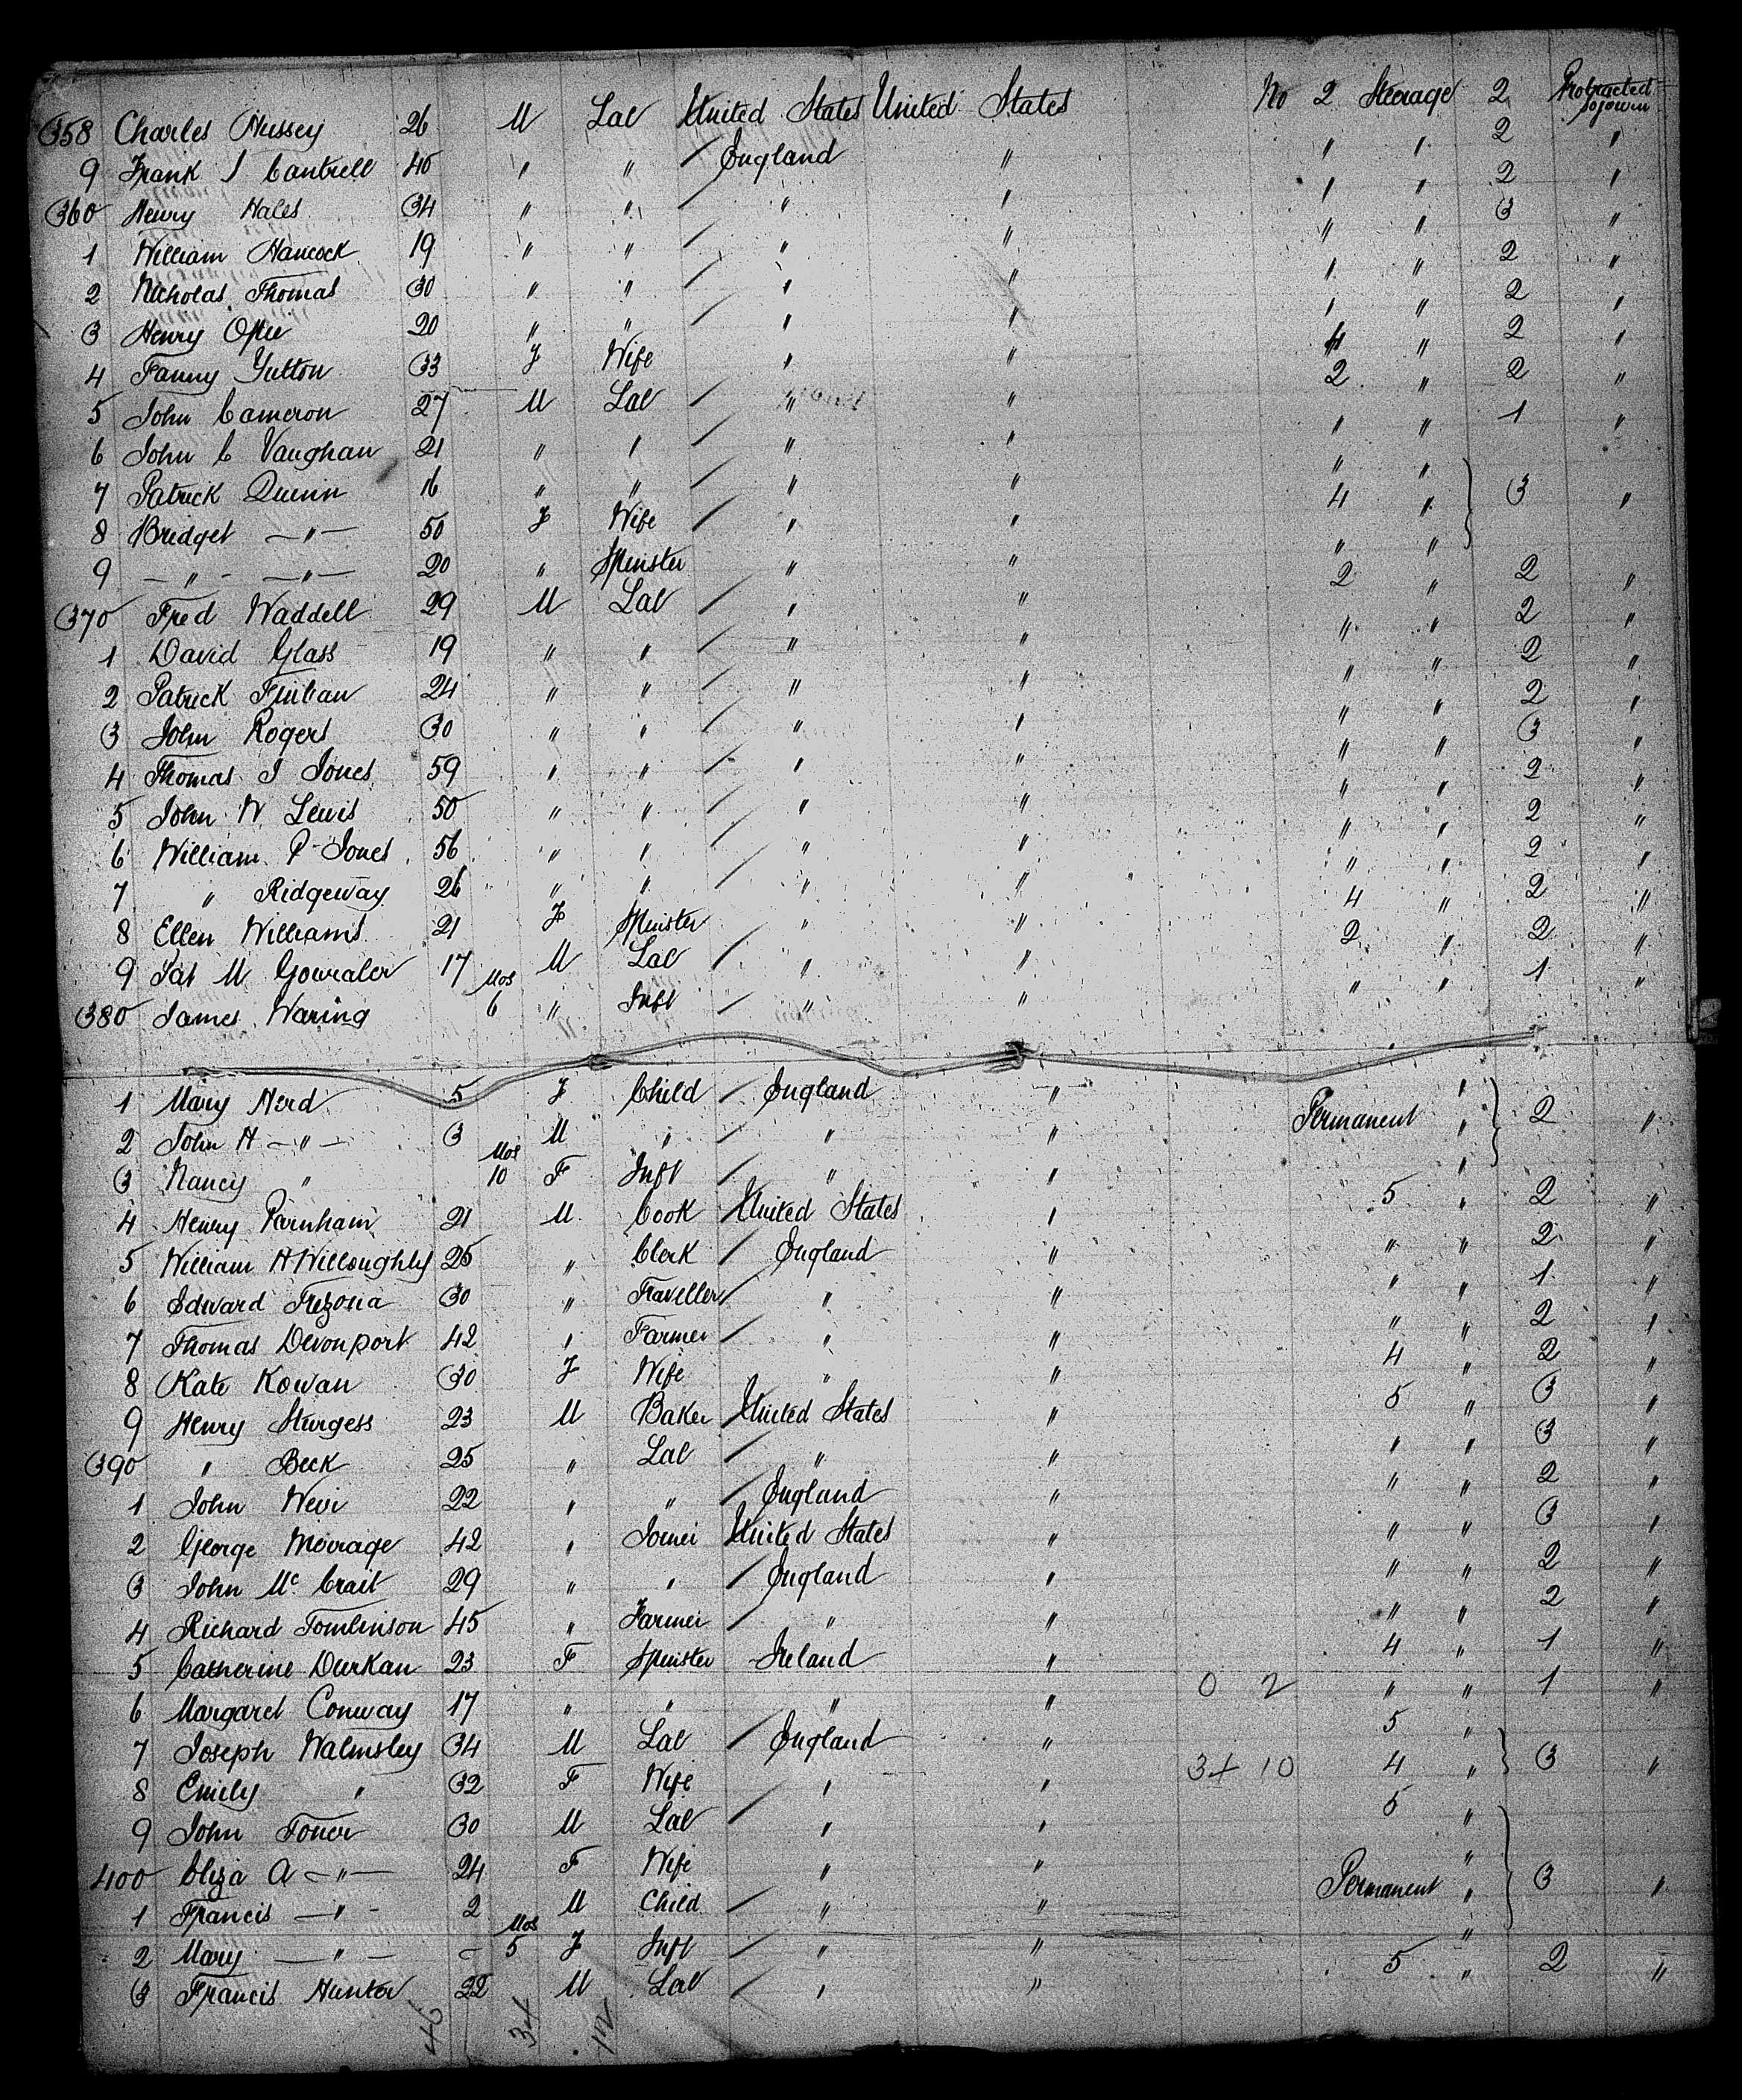 358 Charles Hussey 26 M Lab United States United States No 2 Steerage 2 Protracted sojourn
9 Frank J Cantrell 40 " " / England " " " 2 "
360 Henry Hales 34 " " / " " " " 2 "
1 William Hancock 19 " " / " " " " 3 "
2 Nicholas Thomas 30 " " / " " " " 2 "
3 Henry Opie 20 " " / " " " " 2 "
4 Fanny Yutton 33 F Wife " " 4 " 2 "
5 John Cameron 27 M Lab / " " 2 " 2 "
6 John C Vaughan 21 " " / " " " " 1 "
7 Patrick Quinn 16 " " / " " " "
8 Bridget —"— 50 F Wife / " " 4 " 3 "
9 —"— —"— 20 " Spinster " " " "
370 Fred Waddell 29 M Lab / " " 2 " 2 "
1 David Glass 19 " " / " " " " 2 "
2 Patrick 24 " " / " " " " 2 "
3 John Rogers 30 " " / " " " " 2 "
4 Thomas J Jones 59 " " / " " " " 3 "
5 John W Lewis 50 " " / " " " " 2 "
6 William P Jones 56 " " / " " " " 2 "
7 " Ridgeway 26 " " / " " " " 2 "
8 Ellen Williams 21 F Spinster " " 4 " 2 "
9 Pat M 17 M Lab / " " 2 " 2 "
380 James Waring Mos 6 " Inft / " " " " 1 "
1 Mary Herd 5 F Child / England " "
2 John H —"— 3 M " / " " Permanent " 2 "
3 Nancy " Mos 10 F Inft / " " "
4 Henry Parnham 21 M Cook / United States " 5 " 2 "
5 William H Willoughby 25 " Clerk / England " " " 2 "
6 Edward Trezona 30 " Traveller / " " " " 1 "
7 Thomas Devonport 42 " Farmer / " " " " 2 "
8 Kate Kowan 30 F Wife " " 4 " 2 "
9 Henry Sturgess 23 M Baker / United States " 5 " 3 "
390 " Beck 25 " Lab / " " " " 3 "
1 John 22 " " / England " " " 2 "
2 George 42 " Joiner United States " " " 3 "
3 John Mc Crait 29 " " / England " " " 2 "
4 Richard Tomlinson 45 " Farmer / " " " " 2 "
5 Catherine Durkan 23 F Spinster Ireland " 4 " 1 "
6 Margaret Conway 17 " " " " 0 2 " " 1 "
7 Joseph Walmsley 34 M Lab / England " 5 "
8 Emily " 32 F Wife " " 34 10 4 " 3 "
9 John Toner 30 M Lab / " " 5 "
400 Eliza A —"— 24 F Wife " " "
1 Francis —"— 2 M Child / " " Permanent " 3 "
2 Mary —"— – Mos 5 F Inft / " " "
3 Francis Hunter 22 M Lab / " " 5 " 2 "
46 34 12